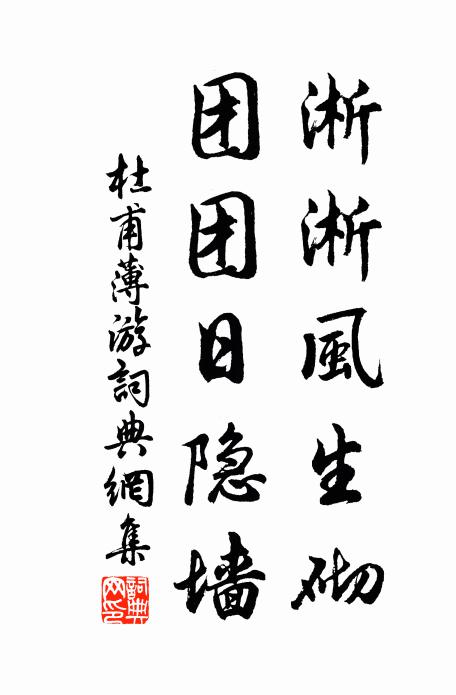 淅淅風生砌
团团日隐墙
杜甫薄游詞典網集
詞典網印